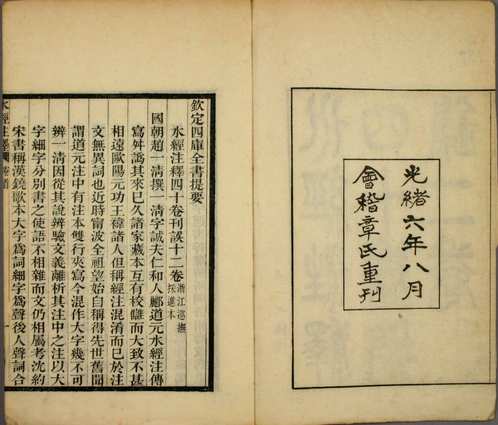 光緒六年八月
會稽章氏重刊
欽定四庫全書提要
水經注釋四十卷刊誤十二卷浙江巡撫採進本
國朝趙一清撰一清字誠夫仁和人酈道元水經注傳
寫舛譌其來已久諸家藏本互有校讎而大致不甚
相遠歐陽元功王禕諸人但稱經注混淆而已於注
文無異詞也近時甯波全祖望始自稱得先世舊聞
謂道元注中有注本雙行夾寫今混作大字幾不可
辨一清因從其說辨驗文義離析其注中之注以大
字細字分別書之使語不相雜而文仍相屬考沈約
宋書稱漢鐃歌本大字爲詞細字爲聲後人聲詞合
水經注釋 卷首 一